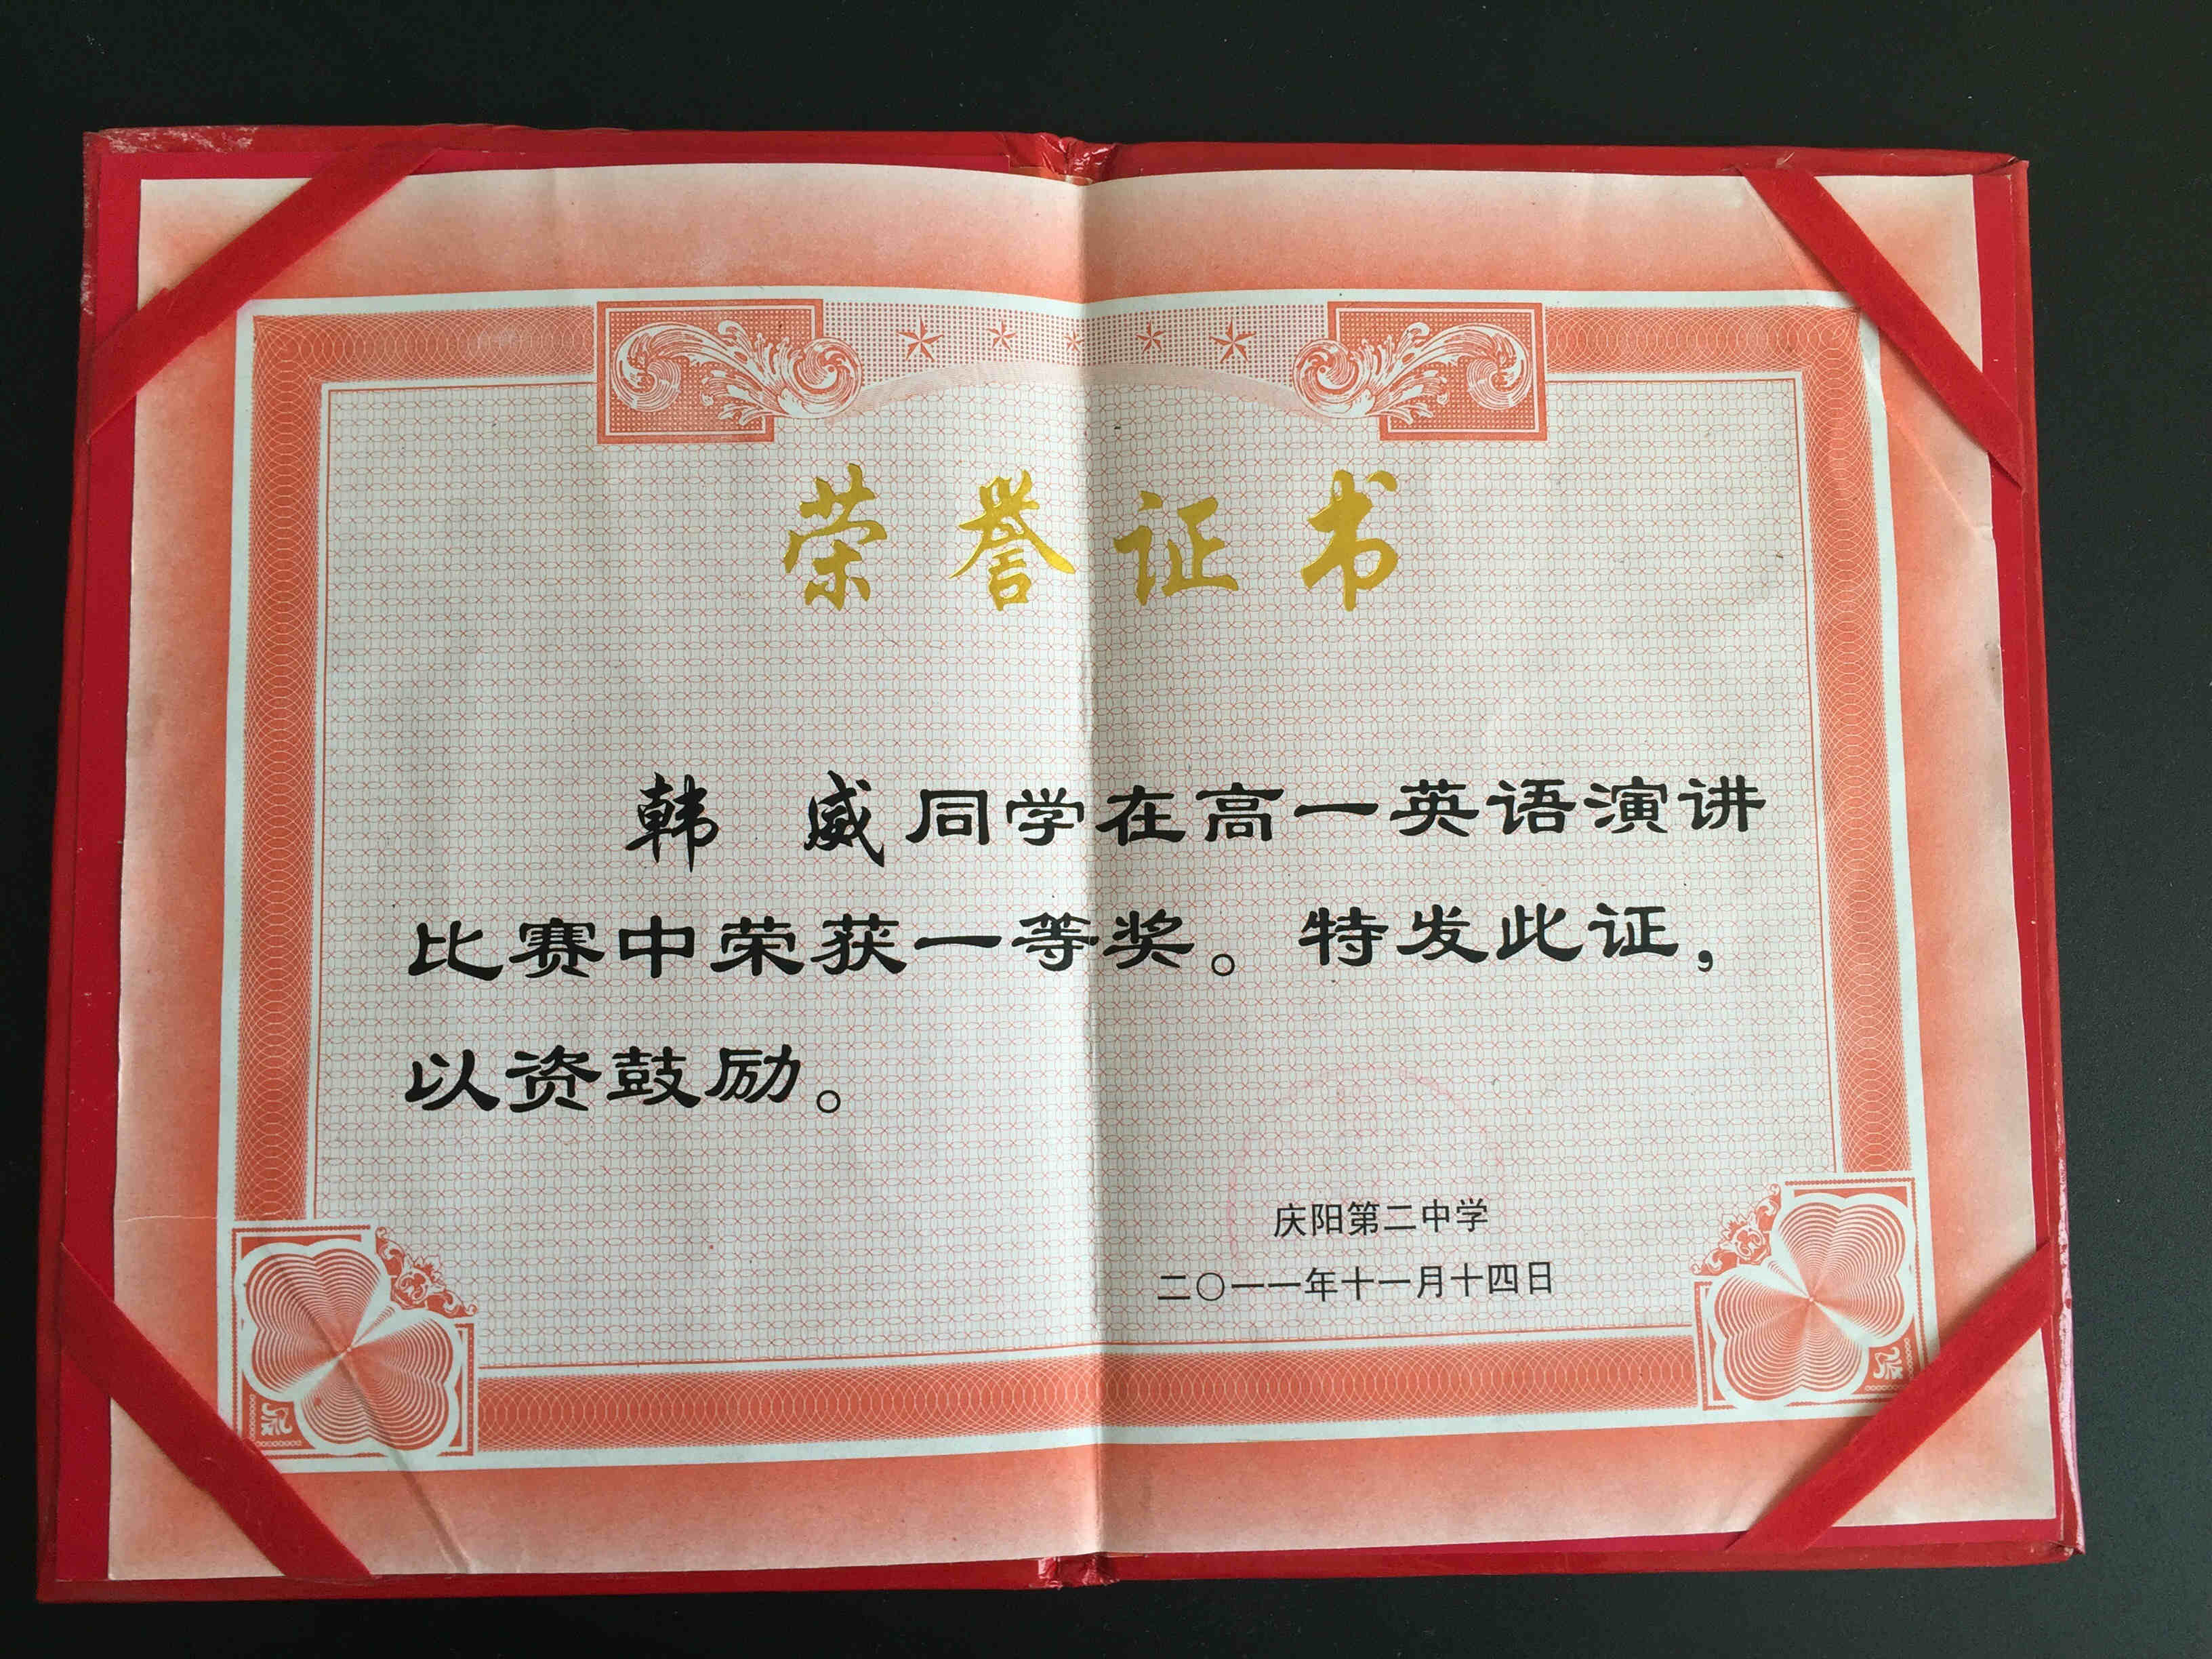 荣誉证书
韩 威同学在高一英语演讲
比赛中荣获一等奖。特发此证，
以资鼓励。
庆阳第二中学
二〇一一年十一月十四日